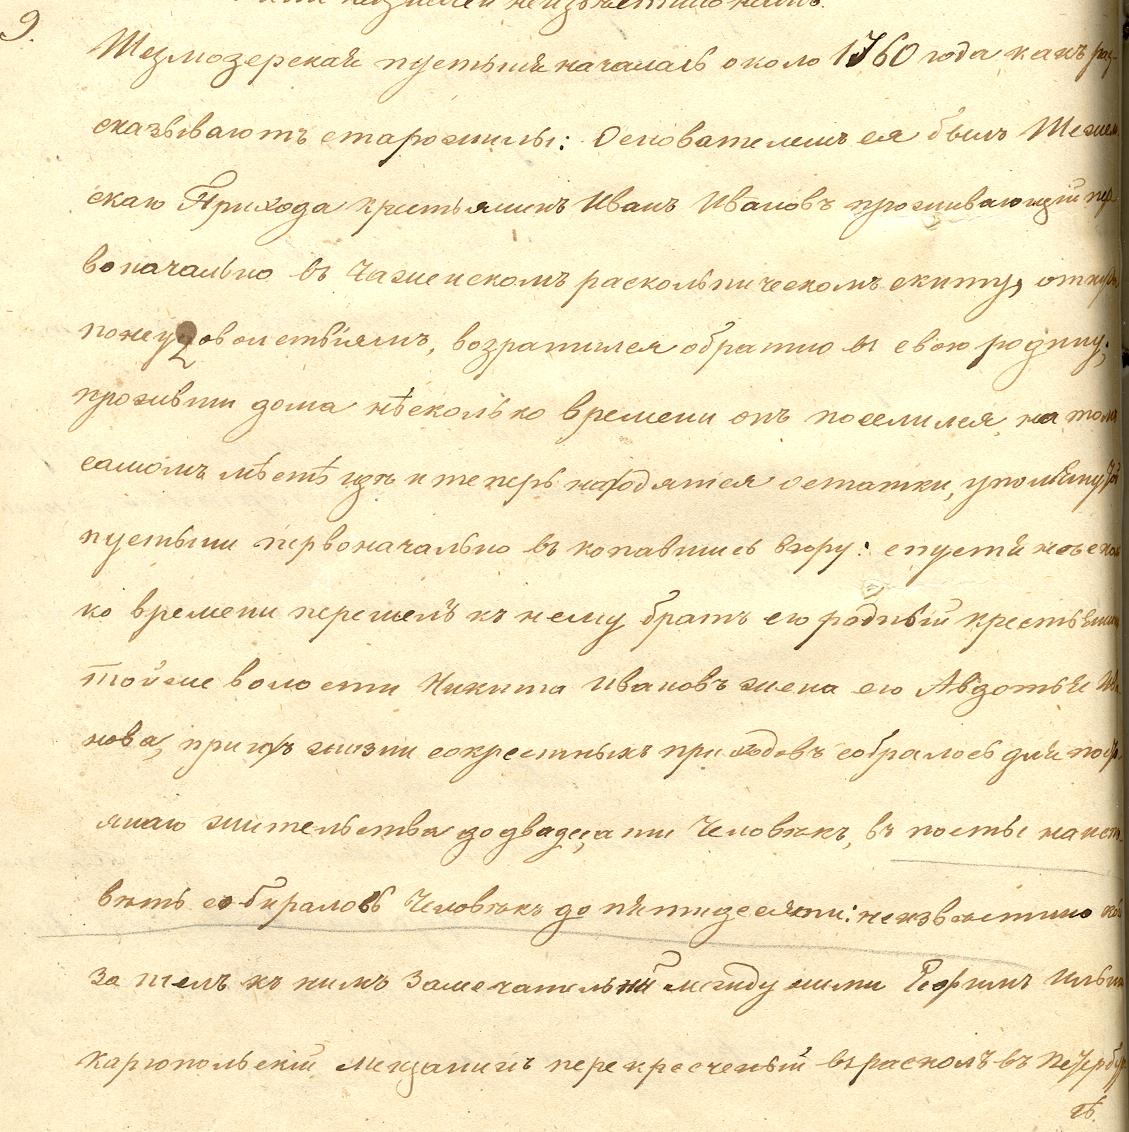 9.
неизвѣстно намъ.
Тегмозерская пустыня началась около 1760 года какъ рас-
сказываютъ старожилы: Основателемъ ея былъ
скаго Прихода крестьянинъ Иванъ Ивановъ проживающій пер-
воначально въ Чаженскомъ раскольническомъ скиту,
по неудовольствіямъ, возратился обратно въ свою родину;
проживши дома нѣсколько времени онъ поселился на томъ
самомъ мѣстѣ гдѣ и теперь находятся остатки,
пустыни первоначально вкопавшись вгору: спустя несколь-
ко времени перешелъ къ нему братъ его родный крестьянинъ
тойже волости Никита Ивановъ жена его Авдотья Ива-
нова, при ихъ жизни сокрестныхъ приходовъ собралось для
яннаго жительства до двадцати Человѣкъ, въ посты
собиралось Человѣкъ до пятидесяти: неизвѣстно
зашелъ къ нимъ Замечательный между ними Ильинъ
каргопольскій мещанинъ перекрещеный въ расколъ въ Петербур-
гѣ.